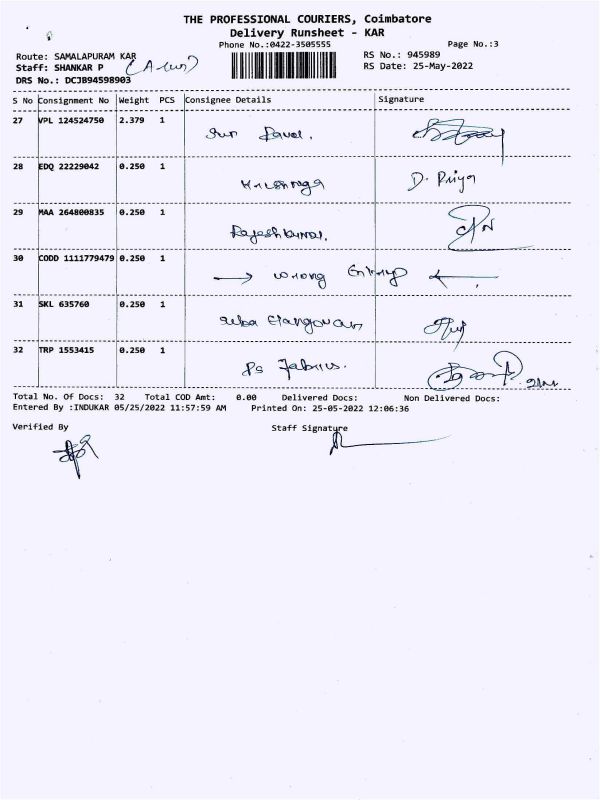 THE PROFESSIONAL COURIERS, Coimbatore
Delivery Runsheet - KAR
Phone No.:0422-3505555 Page No.:3
Route: SAMALAPURAM KAR RS No.: 945989
Staff: SHANKAR P RS Date: 25-May-2022
DRS No.: DCJB94598903
S No Consignment No Weight PCS Consignee Details Signature
27 VPL 124524750 2.379 1
28 EDQ 22229042 0.250 1 D. Priya
29 MAA 264800835 0.250 1 Rajeshkumar.
30 CODD 1111779479 0.250 1 → wrong Entry ←
31 SKL 635760 0.250 1
32 TRP 1553415 0.250 1 Ps Fabrics.
Total No. Of Docs: 32 Total COD Amt: 0.00 Delivered Docs: Non Delivered Docs:
Entered By :INDUKAR 05/25/2022 11:57:59 AM Printed On: 25-05-2022 12:06:36
Verified By Staff Signature